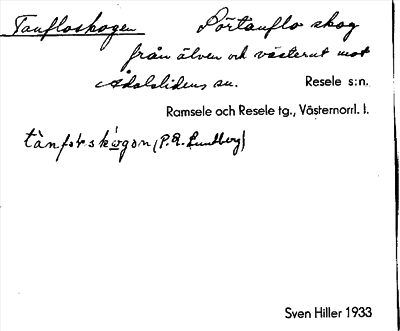 Taufloskogen Pörtauflo skog
från älven och västerut mot
Ådalslidens sn. Resele s:n.
Ramsele och Resele tg., Västernorrl. l.
(P.A. Lundberg)
Sven Hiller 1933